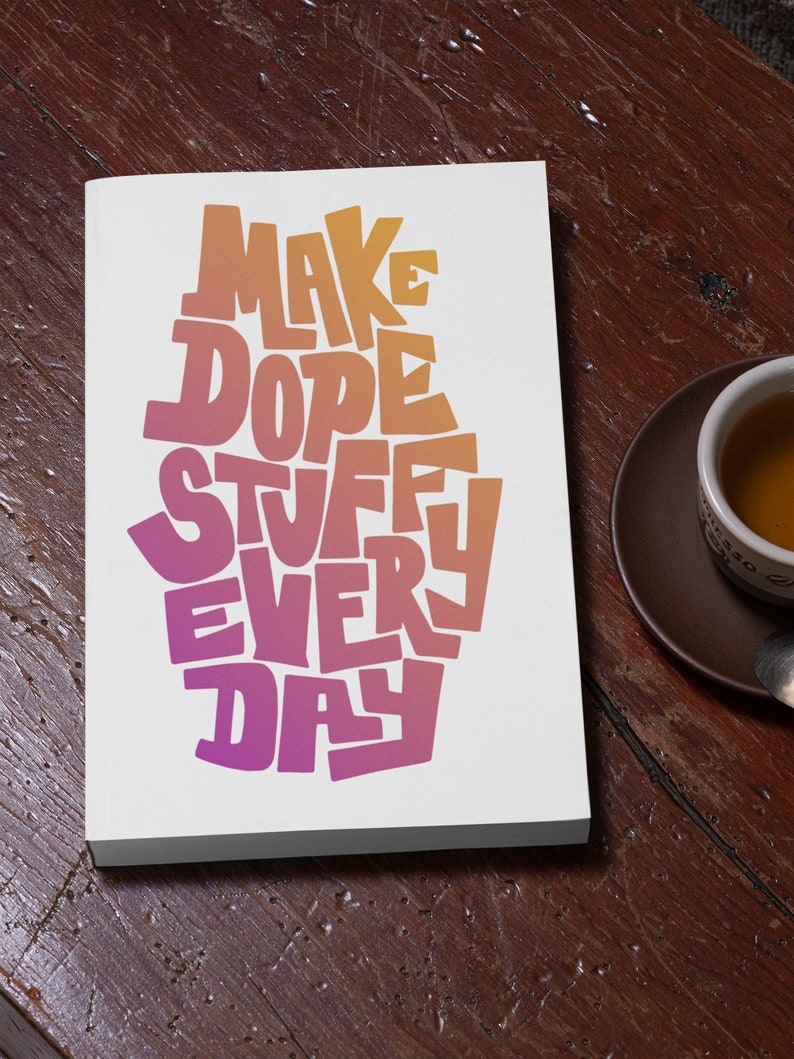 MAKE
DOPE
STUFF
EVERY
DAY